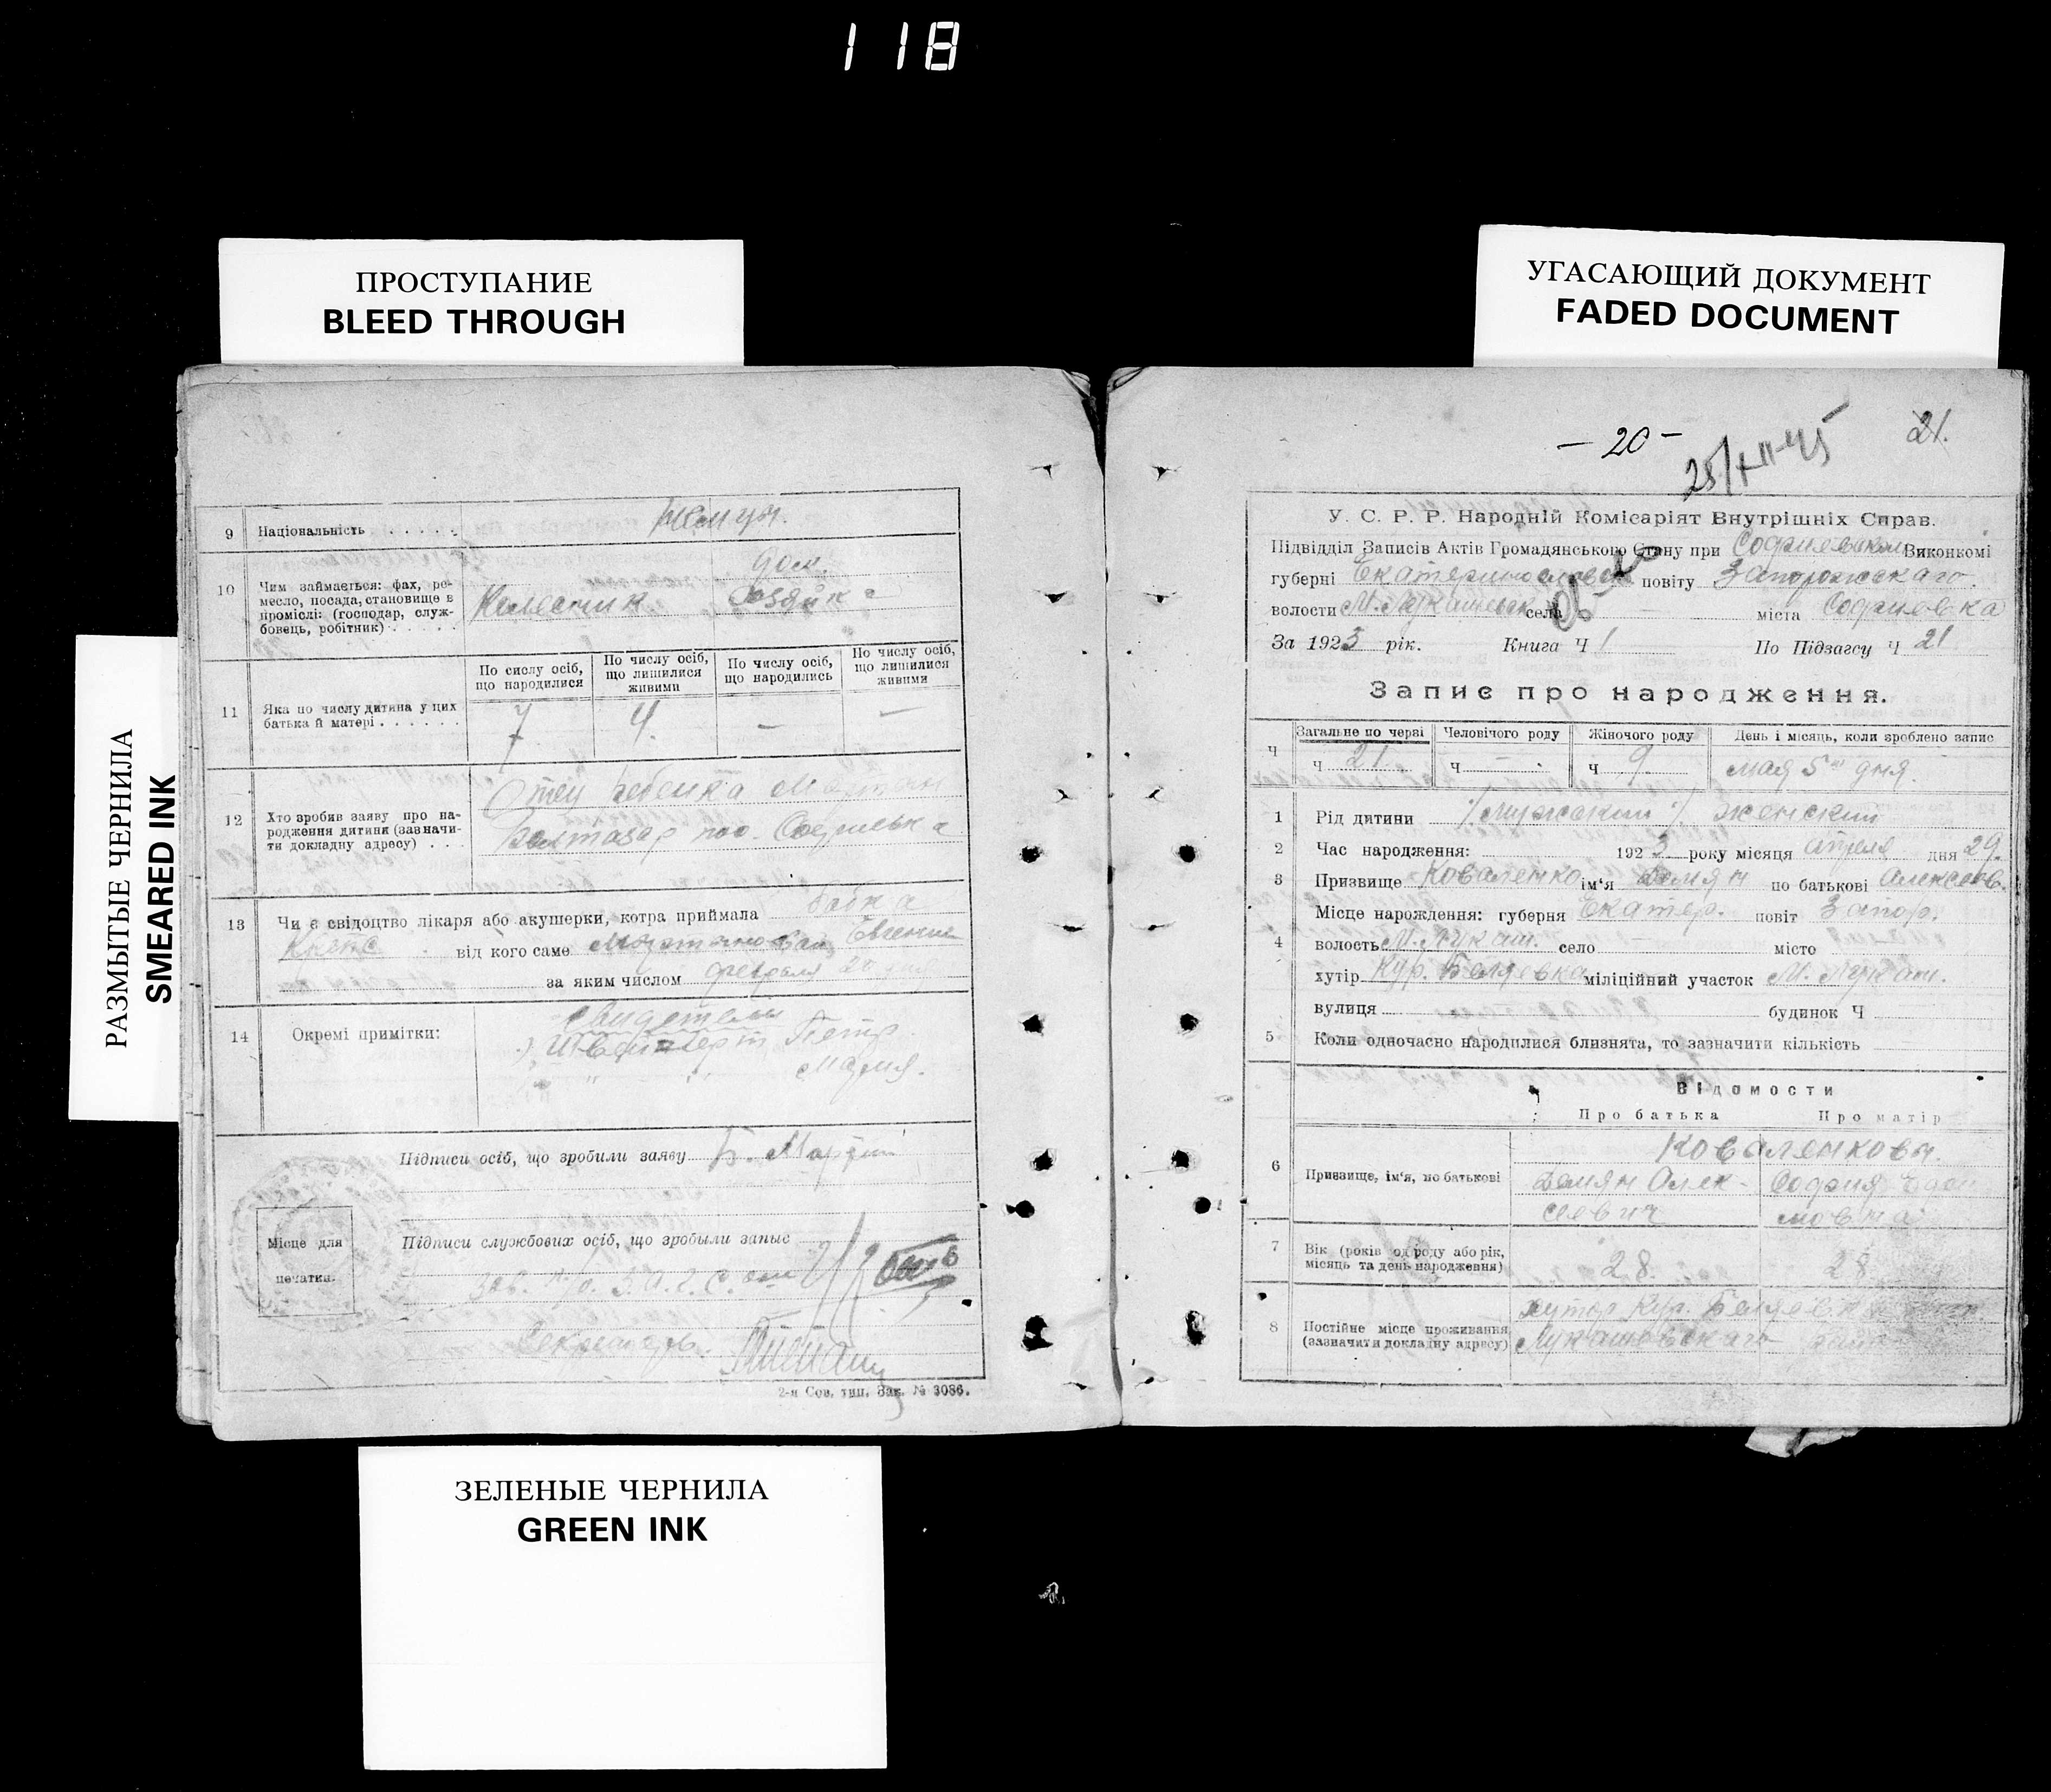 118
ПРОСТУПАНИЕ
BLEED THROUGH
УГАСАЮЩИЙ ДОКУМЕНТ
FADED DOCUMENT
РАЗМЫТЫЕ ЧЕРНИЛА
SMEARED INK
9 Національність . . . . .
10 Чим займається: фах, ре-
месло, посада, становище в
промислі: (господар, служ-
бовець, робітник) . . . . .
Колесник
дом.
хозяйка
11 Яка по числу дитина у цих
батька й матері . . . . . .
По сислу осіб,
що народилися
По числу осіб,
що лишилися
живими
По числу осіб,
що народились
По числу осіб,
що лишилися
живими
7 4. — —
12 Хто зробив заяву про на-
родження дитини (зазначи-
ти докладну адресу) . . .
Отец ребенка Мартин
Балтазар пос. Софиевка
13 Чи є свідоцтво лікаря або акушерки, котра приймала бабка
від кого саме Евгения
за яким числом февраля
14 Окремі примітки:
свидетели
Петр
" " Мария.
Підписи осіб, що зробили заяву Б. Мартин
Місце для
печатки.
Підписи службових осіб, що зробыли запыс
Секретарь.
2-я Сов. тип. Зак. № 3086.
— 20 —
21.
25/XII-45
У. С. Р. Р. Народній Комісаріят Внутрішніх Справ.
Підвідділ Записів Актів Громадянського Стану при Софиевском Виконкомі
губерні Екатеринославск повіту Запорожскаго.
волости М. Лукашевск села — міста Софиевка
За 1923 рік. Книга Ч 1 По Підзагсу Ч 21
Запис про народження.
Ч
Загальне по черзі Человічого роду Жіночого роду День і місяць, коли зроблено запис
Ч 21 Ч — Ч 9. мая 5го дня.
1 Рід дитини /Мужский/ женский
2 Час народження: 1923 року місяця апреля дня 29.
3 Призвище Коваленко ім'я Демян по батькові Алексеев.
4 Місце нарождення: губерня Екатер. повіт Запор.
волость М. Лукаш. село — місто
хутір Кур. Беляевка міліційний участок М. Лукаш.
вулиця будинок Ч
5 Коли одночасно народилися близнята, то зазначити кількість
Відомости
Про батька Про матір
6 Призвище, ім'я, по батькові
Коваленковы.
Демян Алек-
сеевич
София
мовна
7 Вік (років од роду або рік,
місяць та день народження)
28. 28
8 Постійне місце проживання
(зазначити докладну адресу)
хутор Кур. Беляевка
Лукашевскаго
ЗЕЛЕНЫЕ ЧЕРНИЛА
GREEN INK